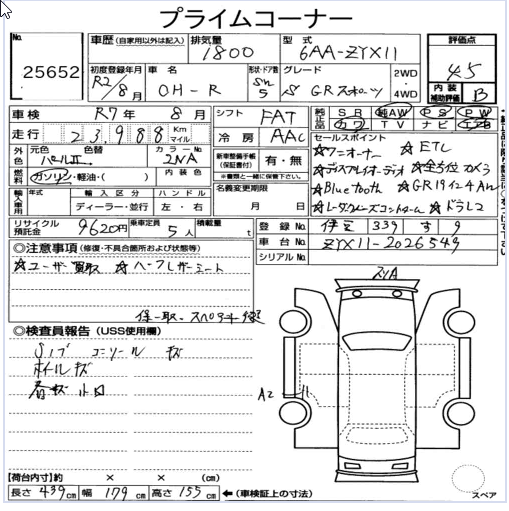 プライムコーナー
No. 25652
車歴 (自家用以外は記入) 排気量 1800 型式 6AA-ZYX11 評価点 4.5
初度登録年月 R2/8月 車名 CH-R 形状・ドア数 SW 5 グレード S GRスポーツ 2WD・4WD 内装補助評価 B
車検 R7年 8月 シフト FAT 純正品 SR 純AW PS PW カワ TV ナビ エアB
走行 23988 Km マイル 冷房 AAC セールスポイント
外色 元色 パールII 色替 カラーNo. 2NA 新車整備手帳(保証書付) 有・無 ※書類と一緒に保管下さい。
☆ワンオーナー ☆ETC
燃料 ガソリン・軽油・( ) 内装色 ☆ディスプレイオーディオ ☆全方位カメラ
輸入車用 年式 輸入区分 ディーラー・並行 ハンドル 左・右 名義変更期限 月 日 ☆Bluetooth ☆GR19インチAW
☆レーダークルーズコントロール ☆ドラレコ
リサイクル預託金 9620円 乗車定員 5人 積載量 t 登録No. 伊豆 339 す 9
車台No. ZYX11-2026549
シリアルNo.
◎注意事項 (修復・不具合箇所および状態等)
☆ユーザー買取 ☆ハーフレザーシート
保-取、スペアキー後
◎検査員報告 (USS使用欄)
Sノブ コンソール キズ
ホイルキズ
A2
【荷台内寸】約 × × (cm)
長さ 439cm 幅 179cm 高さ 155cm ←(車検証上の寸法)
スペア